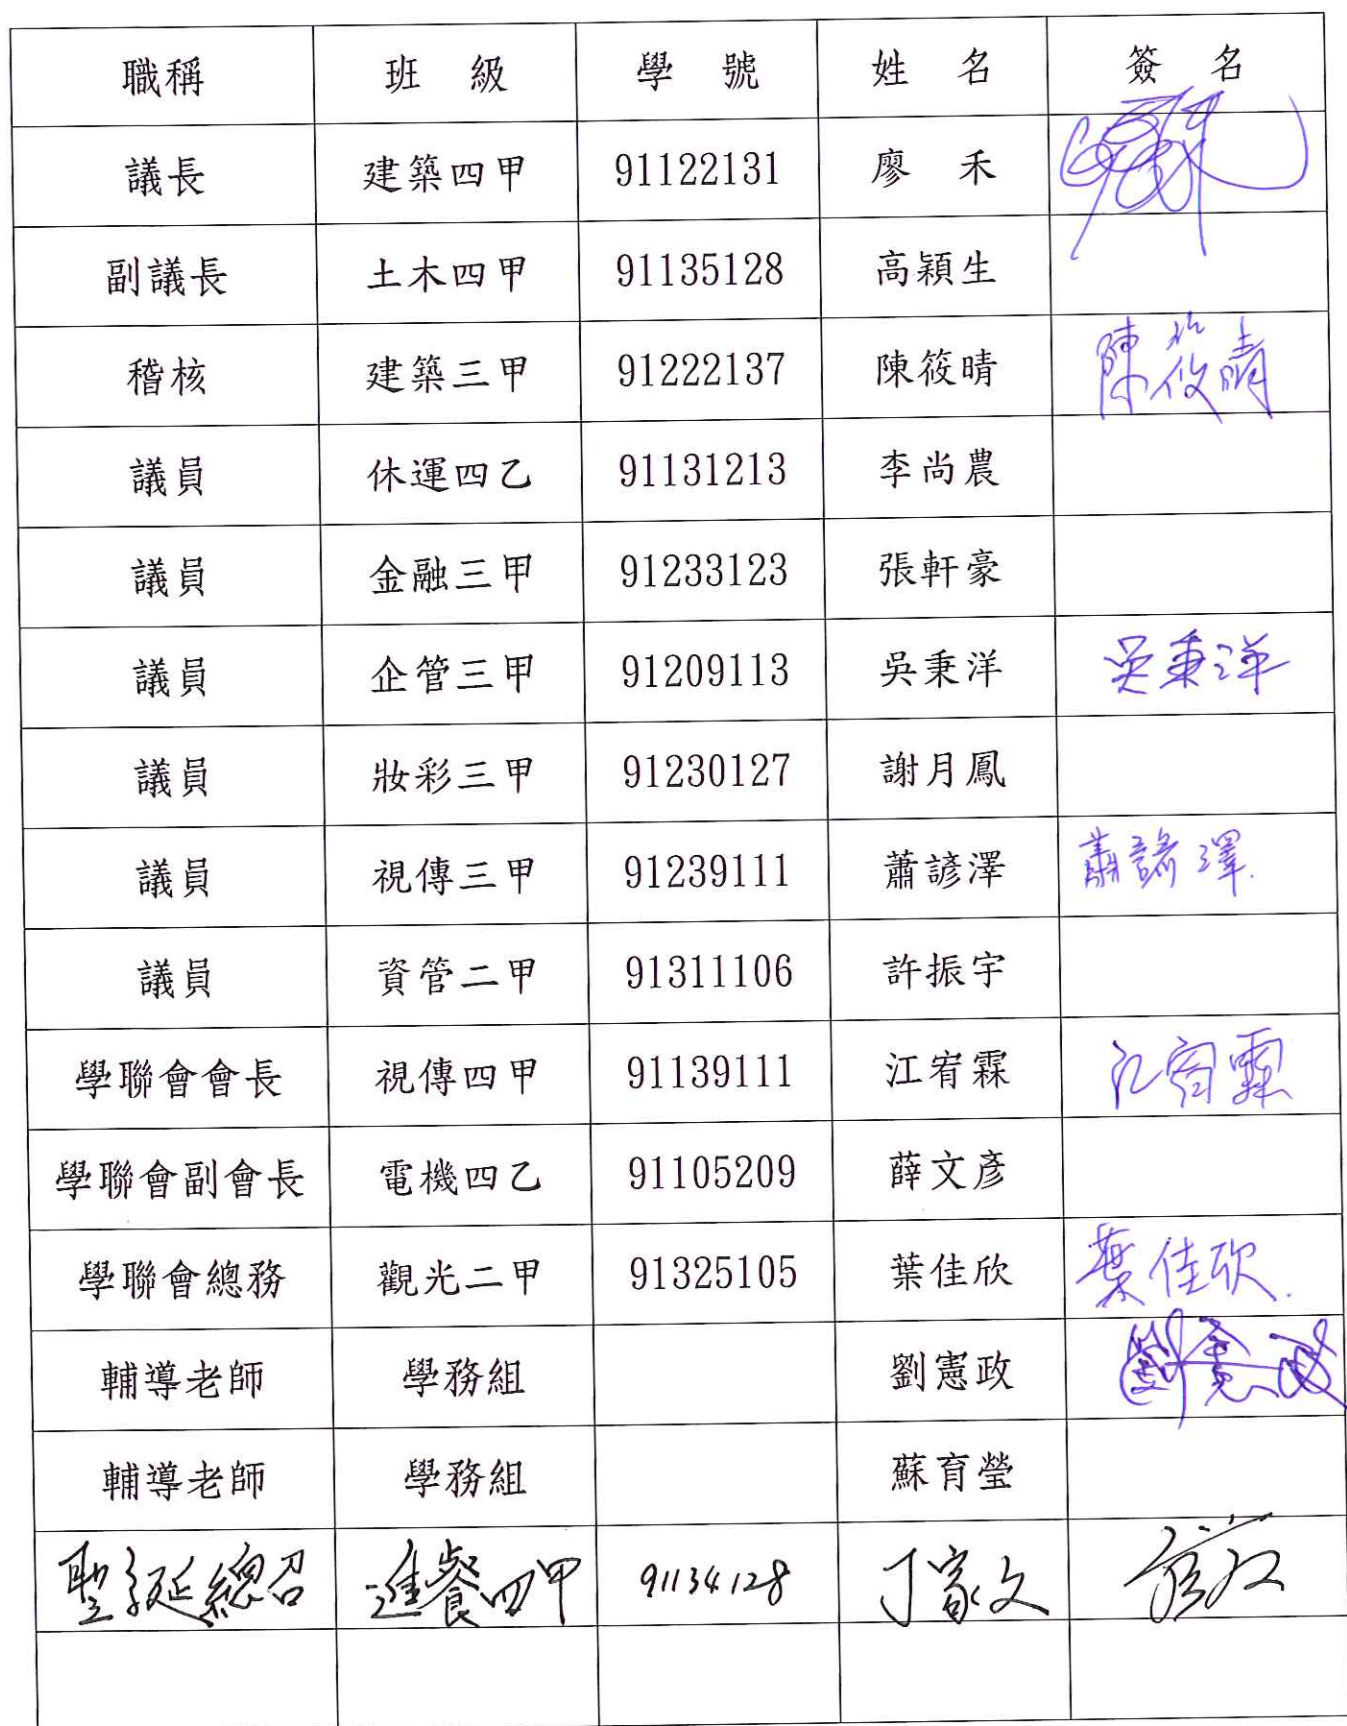 職稱 班 級 學 號 姓 名 簽 名
議長 建築四甲 91122131 廖 禾
副議長 土木四甲 91135128 高穎生
稽核 建築三甲 91222137 陳筱晴 陳筱晴
議員 休運四乙 91131213 李尚農
議員 金融三甲 91233123 張軒豪
議員 企管三甲 91209113 吳秉洋 吳秉洋
議員 妝彩三甲 91230127 謝月鳳
議員 視傳三甲 91239111 蕭諺澤 蕭諺澤.
議員 資管二甲 91311106 許振宇
學聯會會長 視傳四甲 91139111 江宥霖 江宥霖
學聯會副會長 電機四乙 91105209 薛文彥
學聯會總務 觀光二甲 91325105 葉佳欣 葉佳欣.
輔導老師 學務組 劉憲政 劉憲政
輔導老師 學務組 蘇育瑩
聖誕總召 進餐四甲 91134128 丁家文